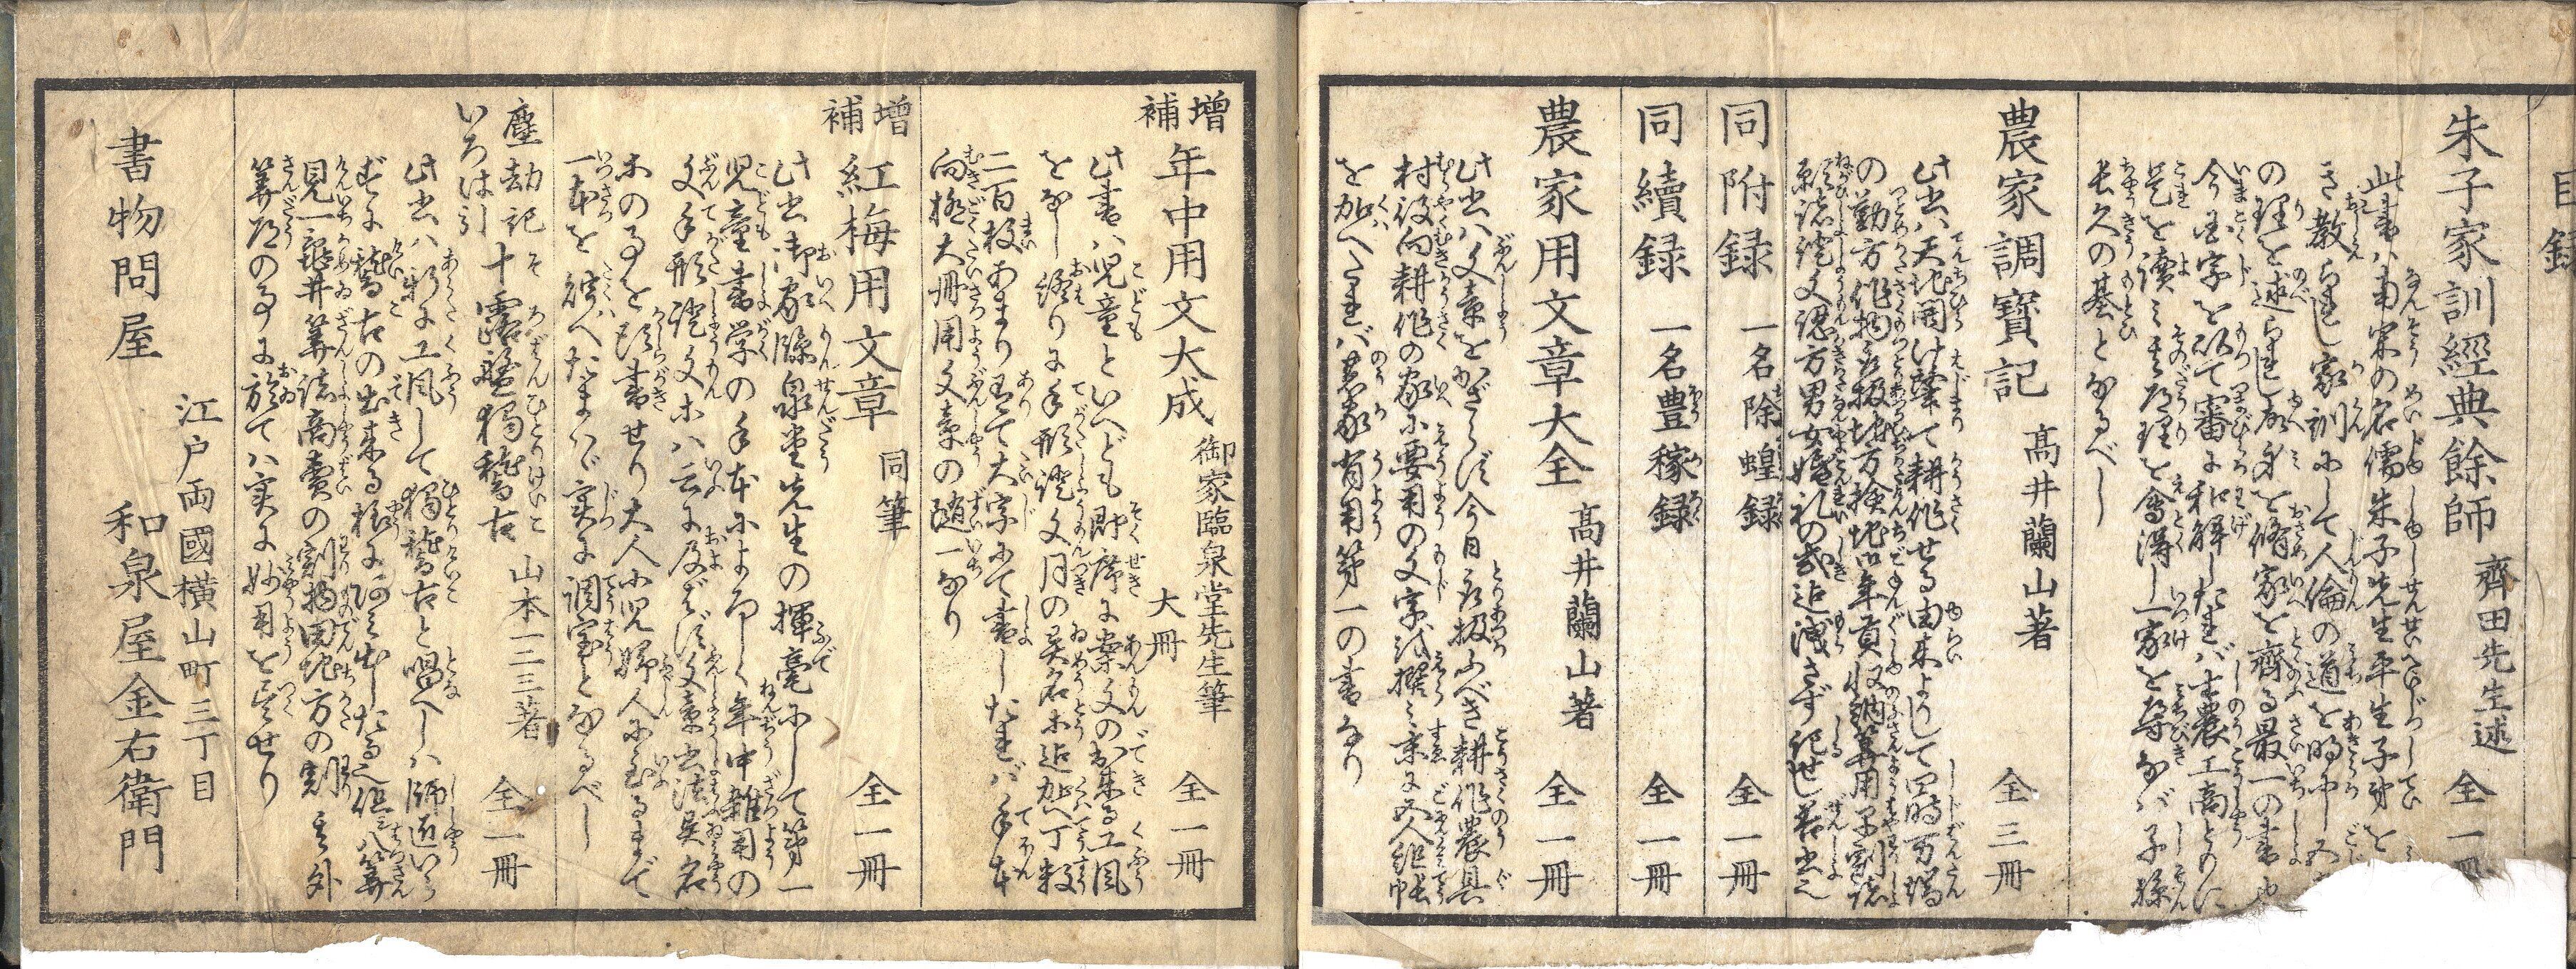 目録
朱子家訓經典餘師 齊田先生述 全一冊
此書ハ南宋の名儒朱子先生平生子弟を
き教られし家訓にして人倫の道を明にし五
の理を述られし故身を脩家を齊る最一の書也
今国字を以て審に和解したれバ士農工商ともに
是を讀ミ其道理を會得し一家を導なバ子孫
長久の基となるべし
農家調寶記 髙井蘭山著 全三冊
此書ハ天地開け肇て耕作せる由来よりして四時万端
の勤方作物取扱地方検地御年貢収納算用早割諸
願諸證文認方男女婚礼の式迄洩さず記せし善書也
同附録 一名除蝗録 全一冊
同續録 一名豊稼録 全一冊
農家用文章大全 髙井蘭山著 全一冊
此書ハ文章をかざらず今日取扱ふべき耕作農具
村役向耕作の家に要用の文字を撰ミ末に五人組帳
を加へたれバ農家有用第一の書なり
増補 年中用文大成 御家臨泉堂先生筆 大冊 全一冊
此書ハ児童といへども即席に案文の出来る工風
をなし終りに手形證文月の異名等迄加へ丁数
二百枚あまり有て大字にて書したれバ手本
向極大冊用文章の随一なり
増補 紅梅用文章 同筆 全一冊
此書御家臨泉堂先生の揮毫にして第一
児童書学の手本によろしく年中雑用の
文手形證文等ハ云に及ばず文章書法異名
等の事を頭書せり大人小児婦人に至るまで
一本を備へたまハヾ実に調宝となるべし
塵劫記 いろは引 十露盤獨稽古 山本一二三著 全一冊
此書ハ新に工風して獨稽古と唱へしハ師匠いら
ずに稽古の出来る様に洩出したる也但シ八算
見一亀井算諸商賣の割物田地方の割其外
算道の事に於てハ実に妙用を尽せり
江戸両國横山町三丁目
書物問屋 和泉屋金右衛門